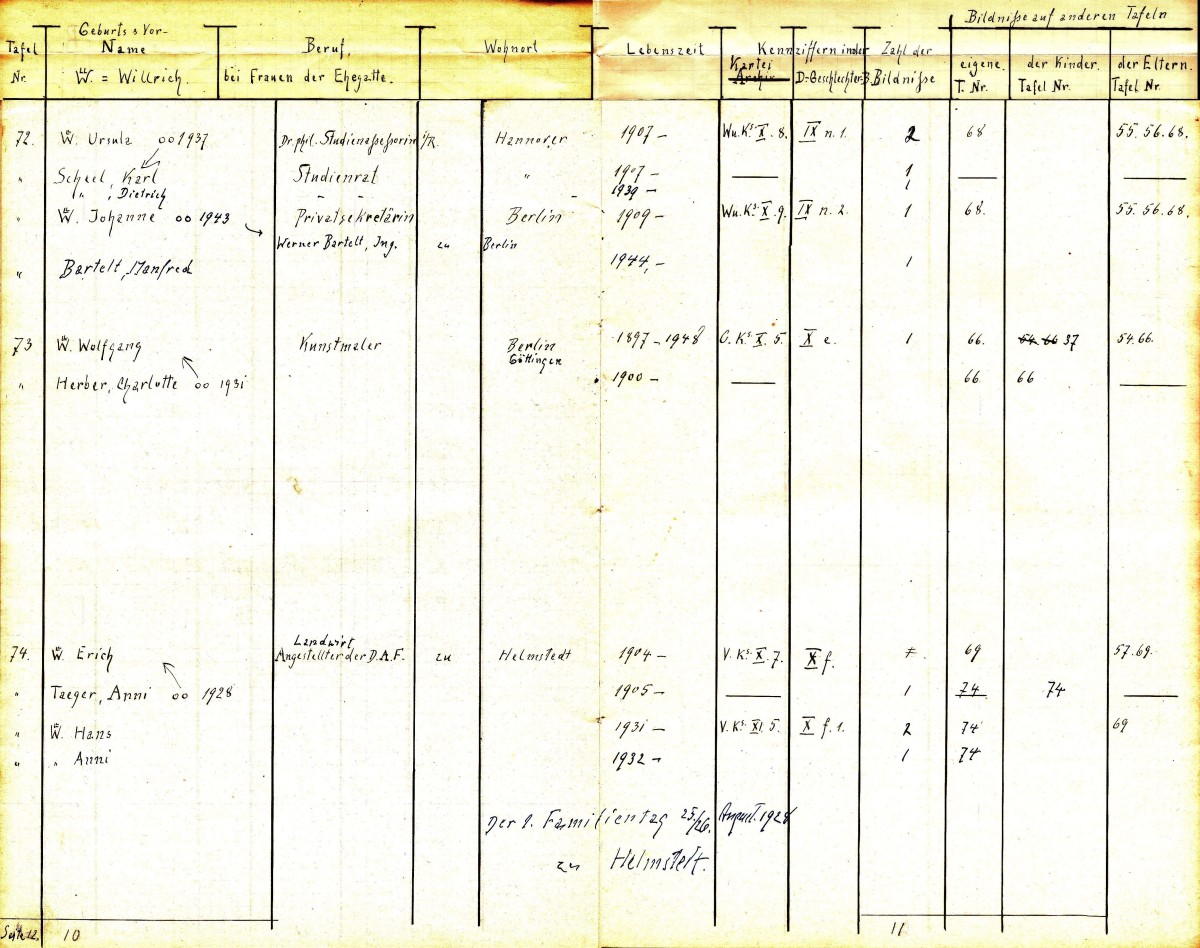 Bildnisse auf anderen Tafeln
Geburts & Vor-
Tafel Name Beruf, Wohnort Lebenszeit Kennziffern in der Zahl der
Kartei eigene. der Kinder. der Eltern.
Nr. W. = Willrich. bei Frauen der Ehegatte. Archiv D-Geschlechter-B. Bildnisse T. Nr. Tafel Nr. Tafel Nr.
72. W. Ursula oo 1937 Dr. phil. Studienassessorin i/R. Hannover 1907 – Wu. Ks. X. 8. IX n. 1. 2 68 55. 56. 68.
" Scheel, Karl Studienrat " 1907 – — 1 — —
" " , Dietrich - - - 1939 – 1
" W. Johanne oo 1943 Privatsekretärin Berlin 1909 – Wu. Ks. X. 9. IX n. 2. 1 68. 55. 56. 68.
Werner Bartelt, Ing. zu Berlin
" Bartelt, Manfred 1944, – 1
73 W. Wolfgang Kunstmaler Berlin 1897 – 1948 O. Ks. X. 5. X e. 1 66. 54. 66 37 54. 66.
Göttingen
" Herber, Charlotte oo 1931 1900 – — 66 66 —
Landwirt
74. W. Erich Angestellter der D.A.F. zu Helmstedt 1904 – V. Ks. X. 7. X f. 69 57. 69.
" Taeger, Anni oo 1928 1905 – — 1 74 74 —
" W. Hans 1931 – V. Ks. XI. 5. X f. 1. 2 74 69
" " Anni 1932 – 1 74
Der 1. Familientag 25/26. August 1928
zu Helmstedt.
Seite 12. 10 11